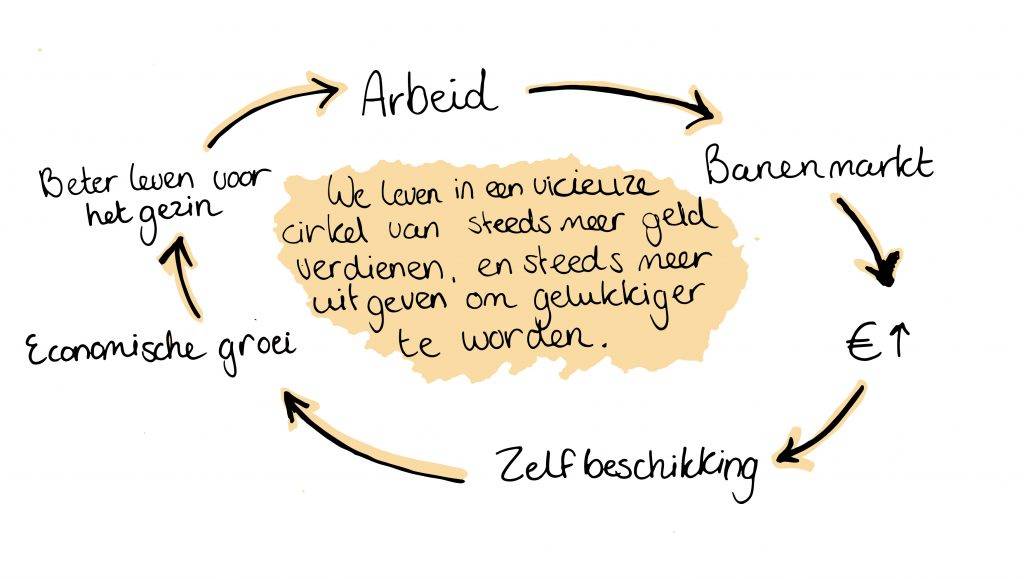 Arbeid
Banenmarkt
€↑
Zelfbeschikking
Economische groei
Beter leven voor
het gezin
We leven in een vicieuze
cirkel van steeds meer geld
verdienen, en steeds meer
uitgeven om gelukkiger
te worden.